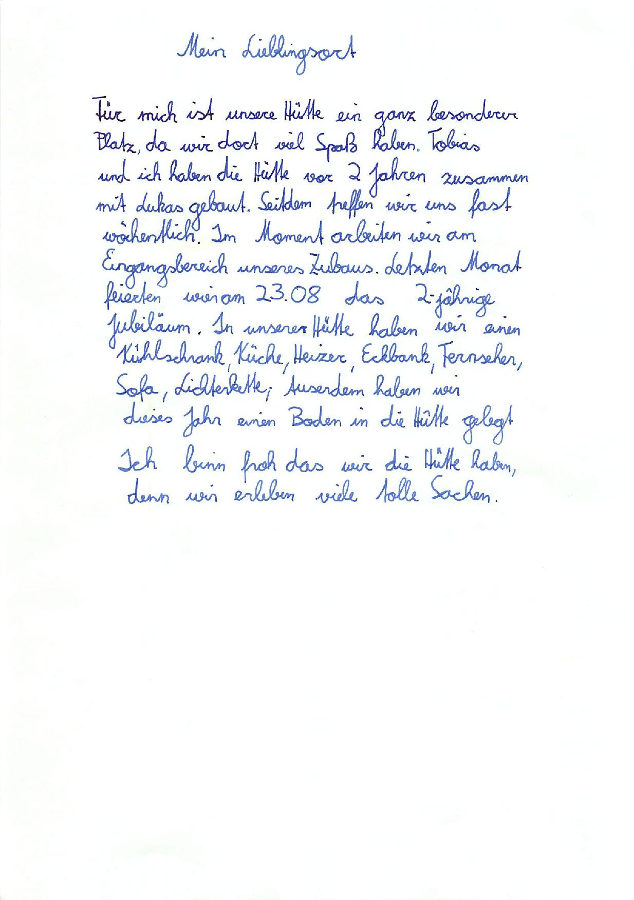 Mein Lieblingsort
Für mich ist unsere Hütte ein ganz besonderer
Platz, da wir dort viel Spaß haben. Tobias
und ich haben die Hütte vor 2 Jahren zusammen
mit Lukas gebaut. Seitdem treffen wir uns fast
wöchentlich. Im Moment arbeiten wir am
Eingangsbereich unseres Zubaus. Letzten Monat
feierten wir am 23.08 das 2-jährige
Jubiläum. In unserer Hütte haben wir einen
Kühlschrank, Küche, Heizer, Eckbank, Fernseher,
Sofa, Lichterkette; Auserdem haben wir
dieses Jahr einen Boden in die Hütte gelegt
Ich binn froh das wir die Hütte haben,
denn wir erleben viele tolle Sachen.